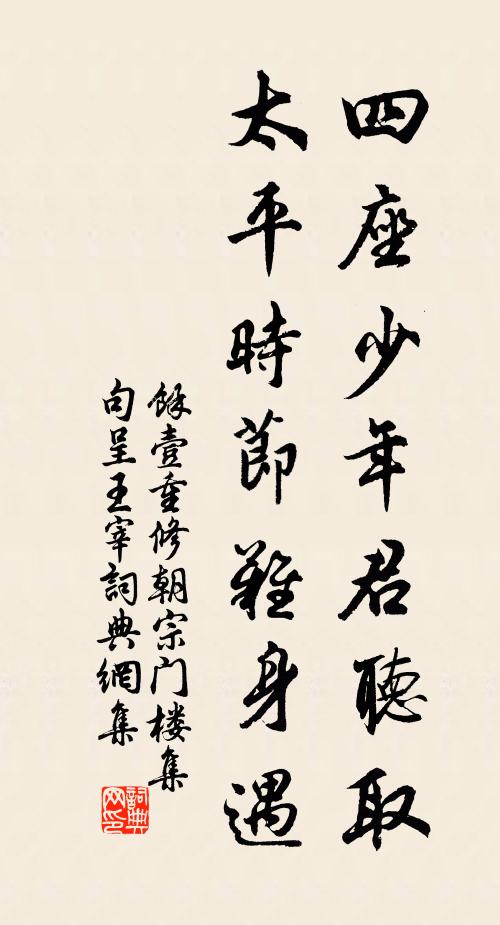 四座少年君聽取
太平時節難身遇
餘壹重修朝宗门楼集
句呈王宰詞典網集
詞典網印